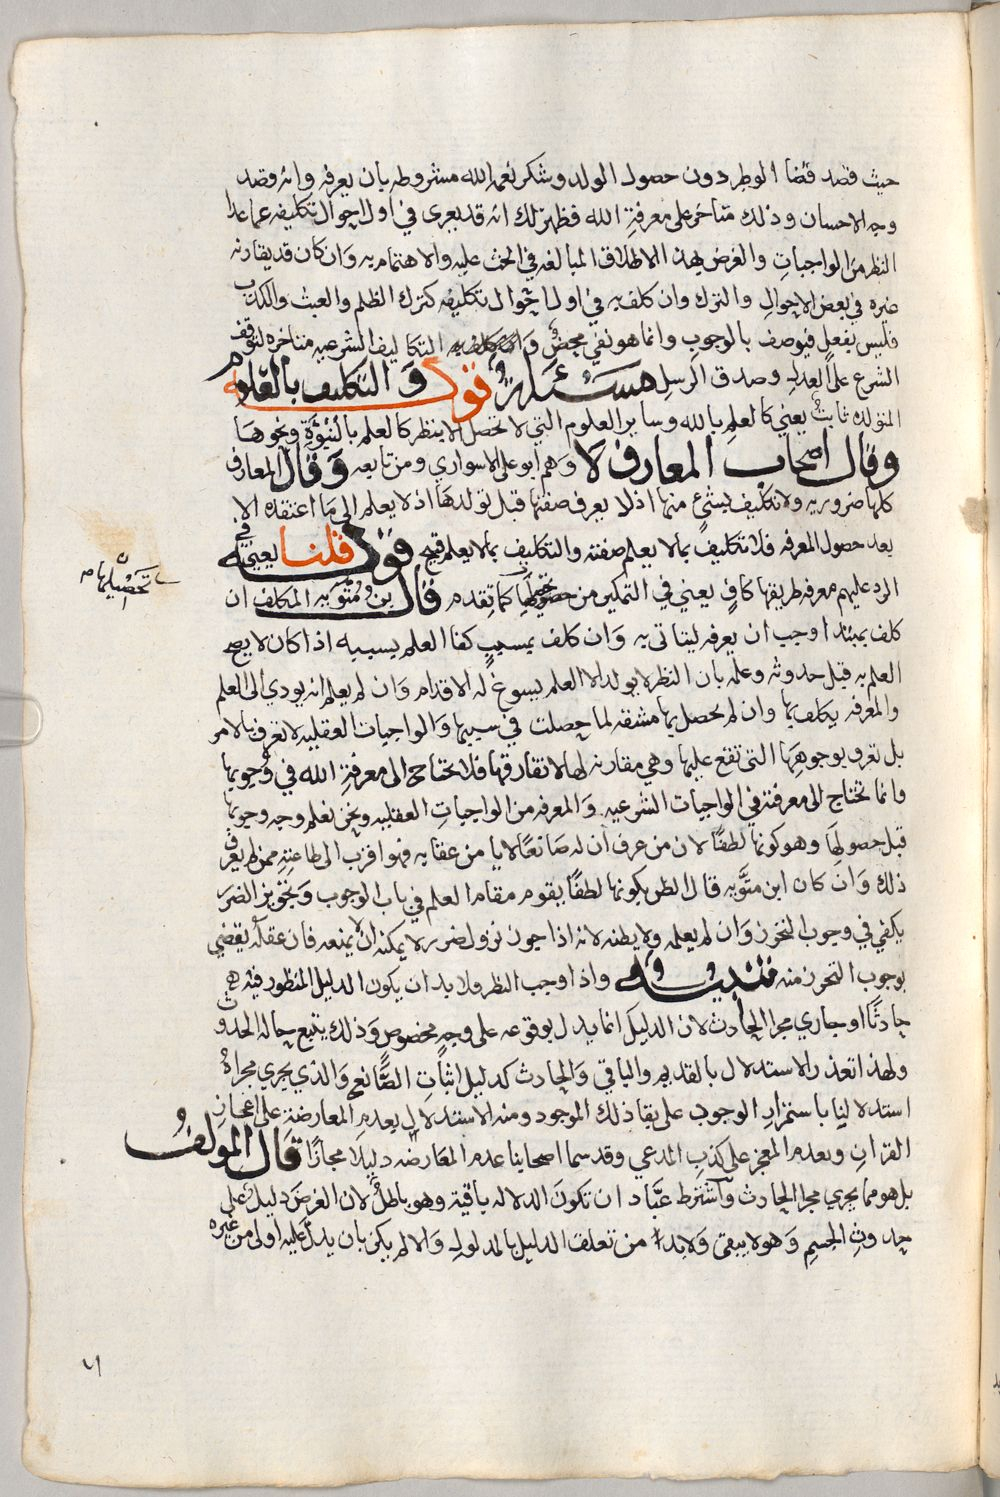 حيث قصد قضا الوطر دون حصول الولد وشكر نعم الله مشروطه بان يعرفه وانه قصد
وجه الاحسان وذلك متاخر على معرفة الله فظهر لك انه قد يعرى في اول احوال تكليفه عما عدا
النظر من الواجبات والغرض بهذا الاطلاق المبالغه في الحث عليه والاهتمام به وان كان قد يقارنه
غيره في بعض الاحوال والترك وان كلف به في اول احوال تكليفه كترك الظلم والعبث والكذب
فليس بفعل فيوصف بالوجوب وانما هو نفي محض و التكاليف الشرعيه متاخره لتوقف
الشرع على العدل وصدق الرسل مسئلة قوله والتكليف بالعلوم
المتولده ثابت يعني كالعلم بالله وساير العلوم التي لا تحصل الا بنظر كالعلم بالنبوة ونحوها
وقال اصحاب المعارف لا وهم ابو علي الاسواري ومن تابعه وقال المعارف
كلها ضروريه ولا تكليف بشئ منها اذ لا يعرف صفتها قبل تولدها اذ لا يعلم الى ما اعتقده الا
بعد حصول المعرفه فلا تكليف بما لا يعلم صفته والتكليف بما لا يعلم قبيح قوله قلنا يعني في
الرد عليهم معرفه طريقها كاف يعني في التمكين من تحصيلها كما تقدم قال ابن متويه المكلف ان
تحصيلها
كلف بمبتدا وجب ان يعرفه ليتاتى به وان كلف بمسبب كفا العلم بسببه اذا كان لا يصح
العلم به قبل حدوثه وعلمه بان النظر لا يولد الا العلم يسوغ له الاقدام وان لم يعلم انه يودي الى العلم
والمعرفه يكلف بها وان لم تحصل بها مشقه لما حصلت في سببها والواجبات العقليه لا تعرف بالامر
بل تعرف بوجوهها التي تقع عليها وهي مقارنه لها لا تفارقها فلا تحتاج الى معرفة الله في وجوبها
وانما تحتاج الى معرفته في الواجبات الشرعيه والمعرفه من الواجبات العقليه ونحن نعلم وجه وجوبها
قبل حصولها وهو كونها لطفا لان من عرف ان له صانعا لا يامن عقابه فهو اقرب الى طاعته ممن لم يعرف
ذلك وان كان ابن متويه قال الظن بكونها لطفا يقوم مقام العلم في باب الوجوب وتجويز الضرر
يكفي في وجوب التحرز وان لم يعلمه ولا يظنه لانه اذا جوز نزول ضرر لا يمكنه ان يمنعه فان عقله يقضي
بوجوب التحرز منه تنبيه واذا وجب النظر ولابد ان يكون الدليل المنظور فيه
حادثا او جاري مجرا الحادث لان الدليل انما يدل بوقوعه على وجه مخصوص وذلك يتبع حالة الحدوث
ولهذا تعذر الاستدلال بالقديم والباقي والحادث كدليل اثبات الصانع والذي يجري مجراه
استدلالنا باستمرار الوجوب على بقا ذلك الموجود ومنه الاستدلال بعدم المعارضة على اعجاز
القران وبعدم المعجز على كذب المدعي وقد سما اصحابنا عدم المعارضه دليلا مجازا قال المولف
بل هو مما يجري مجرا الحادث واشترط عباد ان تكون الدلاله باقية وهو باطل لان العرض دليل على
حدوث الجسم وهو لا يبقى ولا بد من تعلق الدليل بالمدلول والا لم يكن بان يدل عليه اولى من غيره